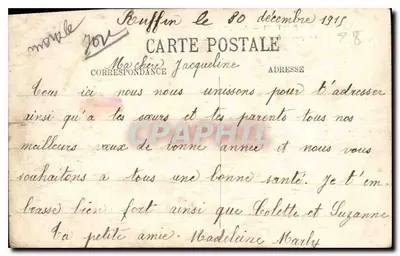 Ruffin le 30 décembre 1915
morale
CARTE POSTALE
CORRESPONDANCE
ADRESSE
Ma chère Jacqueline
Tous ici nous nous unissons pour t'adresser
ainsi qu'a tes sœurs et tes parents tous nos
meilleurs vœux de bonne année et nous vous
souhaitons a tous une bonne santé. Je t'em
brasse bien fort ainsi que Colette et Suzanne
ta petite amie. Madeleine Marly